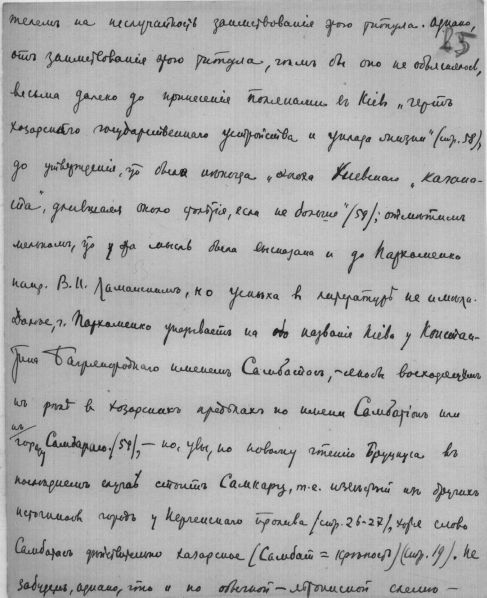 телем на неслучайность заимствования этого титула. Однако,
25
отъ заимствования этого титула, чѣмъ бы оно не объяснялось,
весьма далеко до принесения Полянами въ Кіевъ „чертъ
хозарскаго государственнаго устройства и уклада жизни" (стр. 58),
до утвержденія, что была некогда „эпоха Кіевскаго „кагана-
та", длившаяся около столѣтія, если не больше" (59); отмѣтимъ
мелькомъ, что эта мысль была высказана и до Пархоменко
напр. В.И. Ламанскимъ, но успѣха в литературѣ не имѣла.
Далѣе, г. Пархоменко указываетъ на названіе Кіева у Констан-
тина Багрянороднаго именемъ Самбатасъ, - якобы восходящимъ
къ рѣкѣ в хозарскихъ предѣлахъ по имени Самбатіонъ или
къ
городу Самбарай. (59), - но, увы, по новому чтенію Бруцкуса въ
послѣднемъ случаѣ стоитъ Самкарц, т.е. извѣстный изъ другихъ
источниковъ городъ у Керченскаго пролива (стр. 26-27), хотя слово
Самбатасъ дѣйствительно хазарское (Самбат = крѣпость) (стр. 19). Не
забудемъ, однако, что и по обычной - лѣтописной схемѣ -